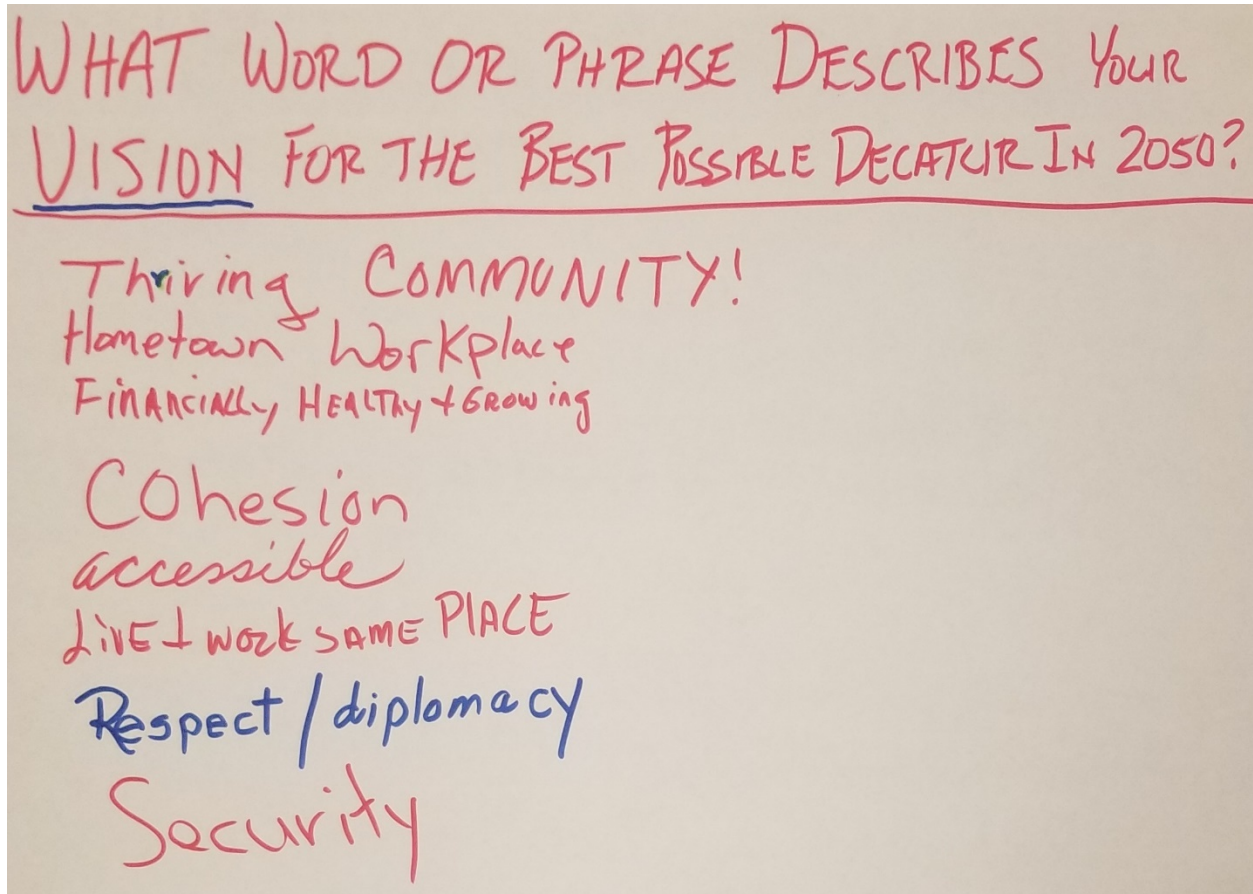 WHAT WORD OR PHRASE DESCRIBES YOUR
VISION FOR THE BEST POSSIBLE DECATUR IN 2050?
Thriving COMMUNITY!
Hometown Workplace
FINANCIALLY HEALTHY + GROWing
COhesion
accessible
LiVE + WORK SAME PLACE
Respect / diplomacy
Security